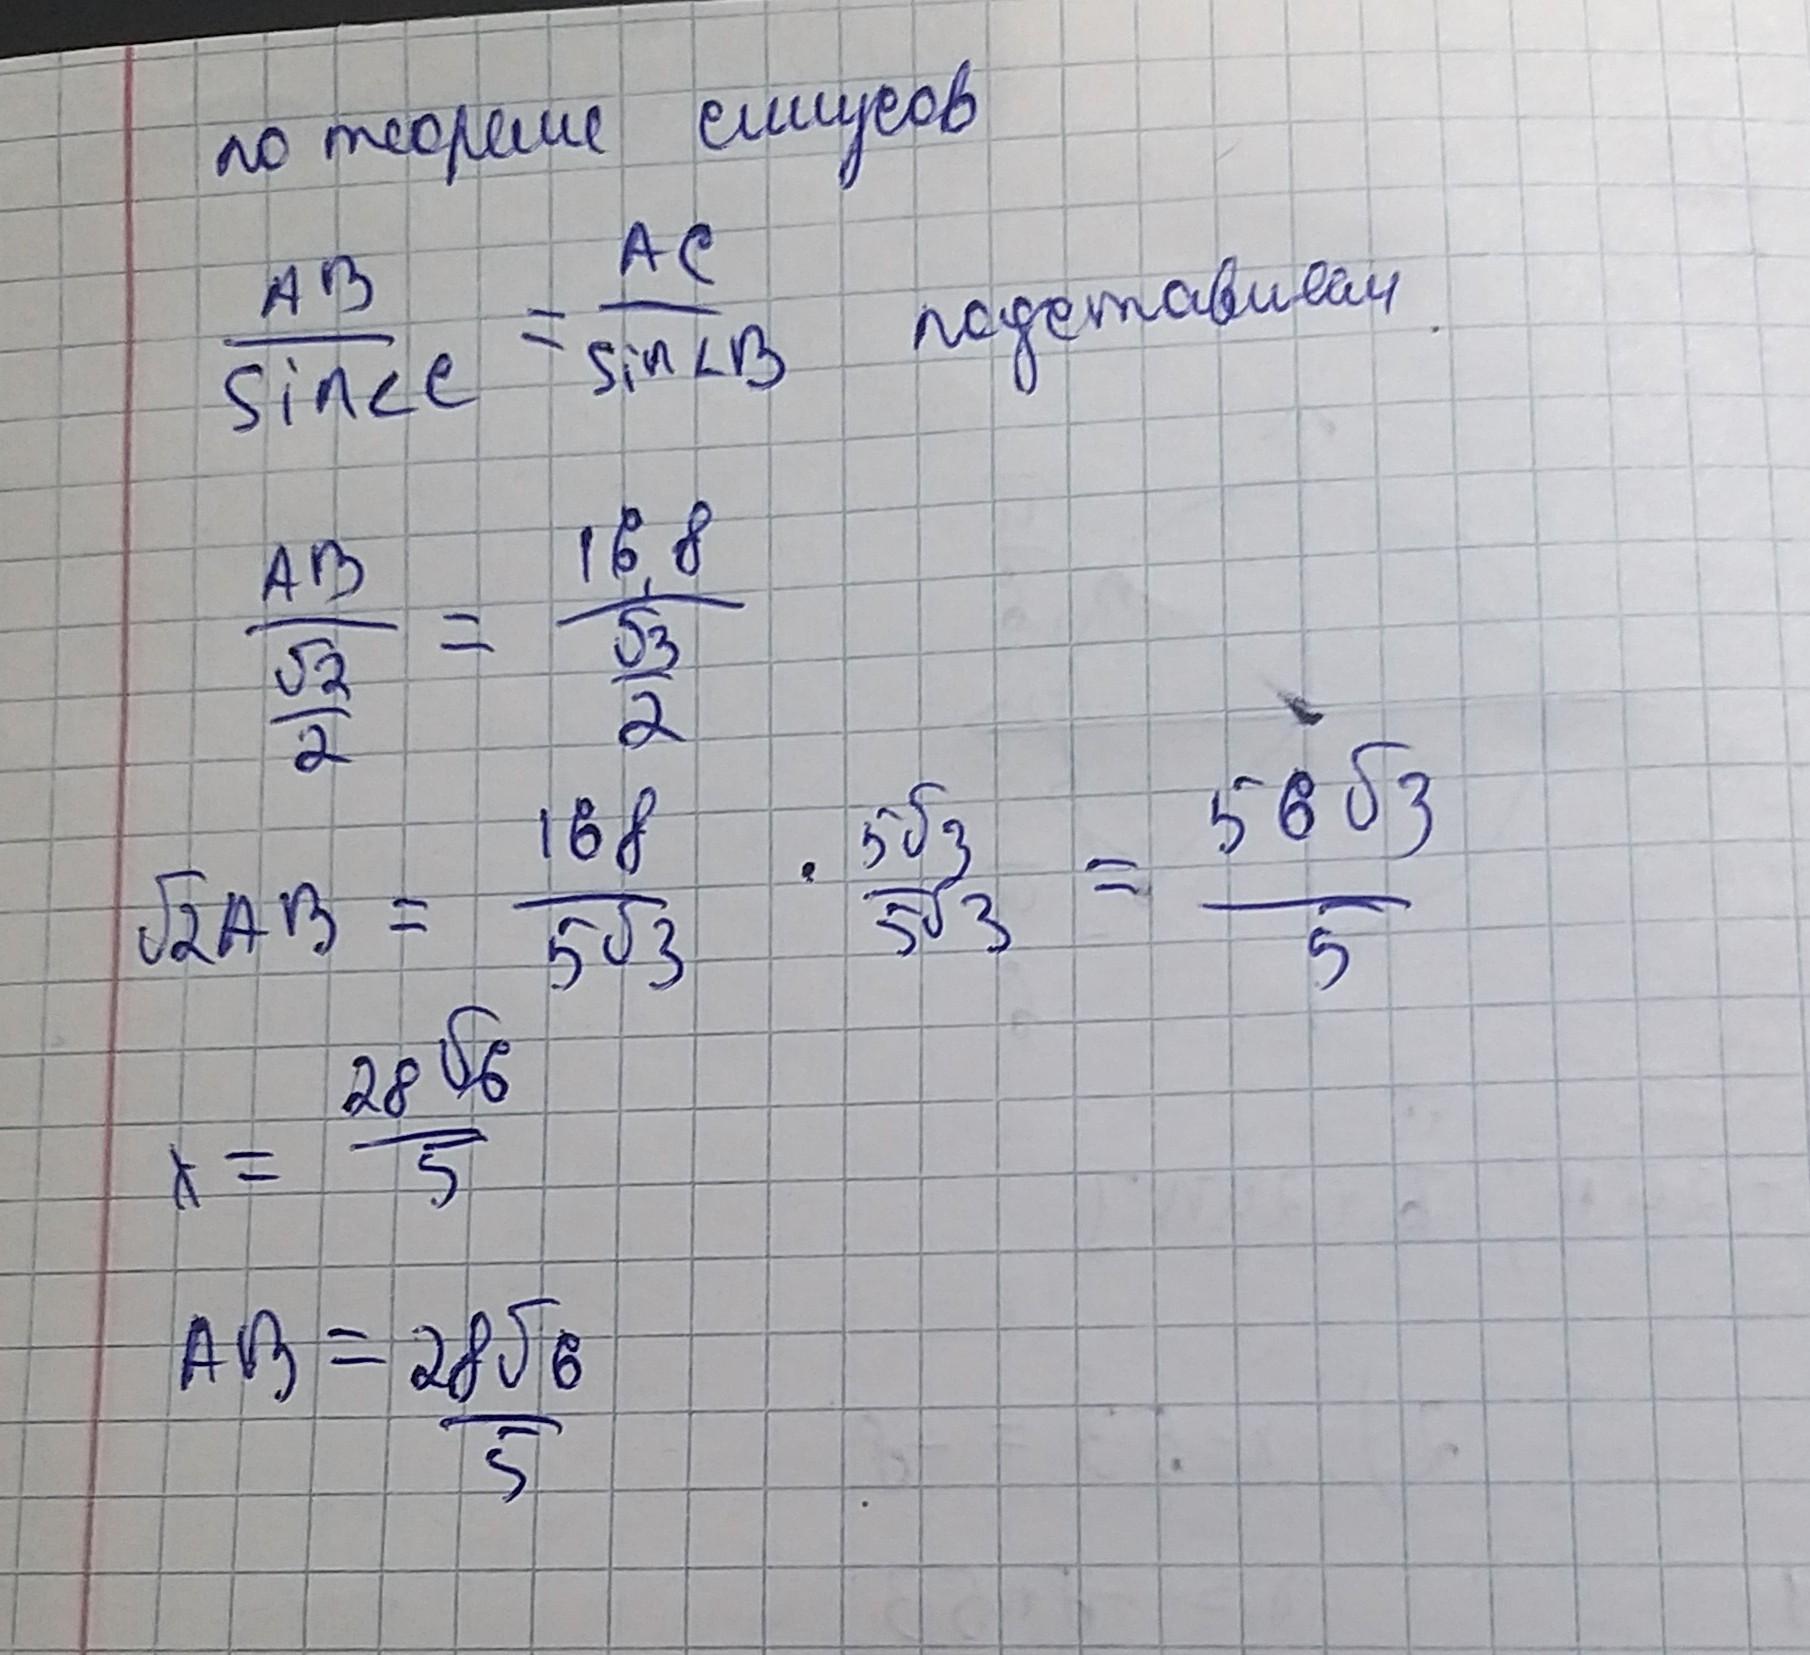 по теореме синусов
AB/sin∠C = AC/sin∠B подставим.
AB/(√2/2) = 16,8/(√3/2)
√2AB = 168/5√3 · 5√3/5√3 = 56√3/5
x = 28√6/5
AB = 28√6/5